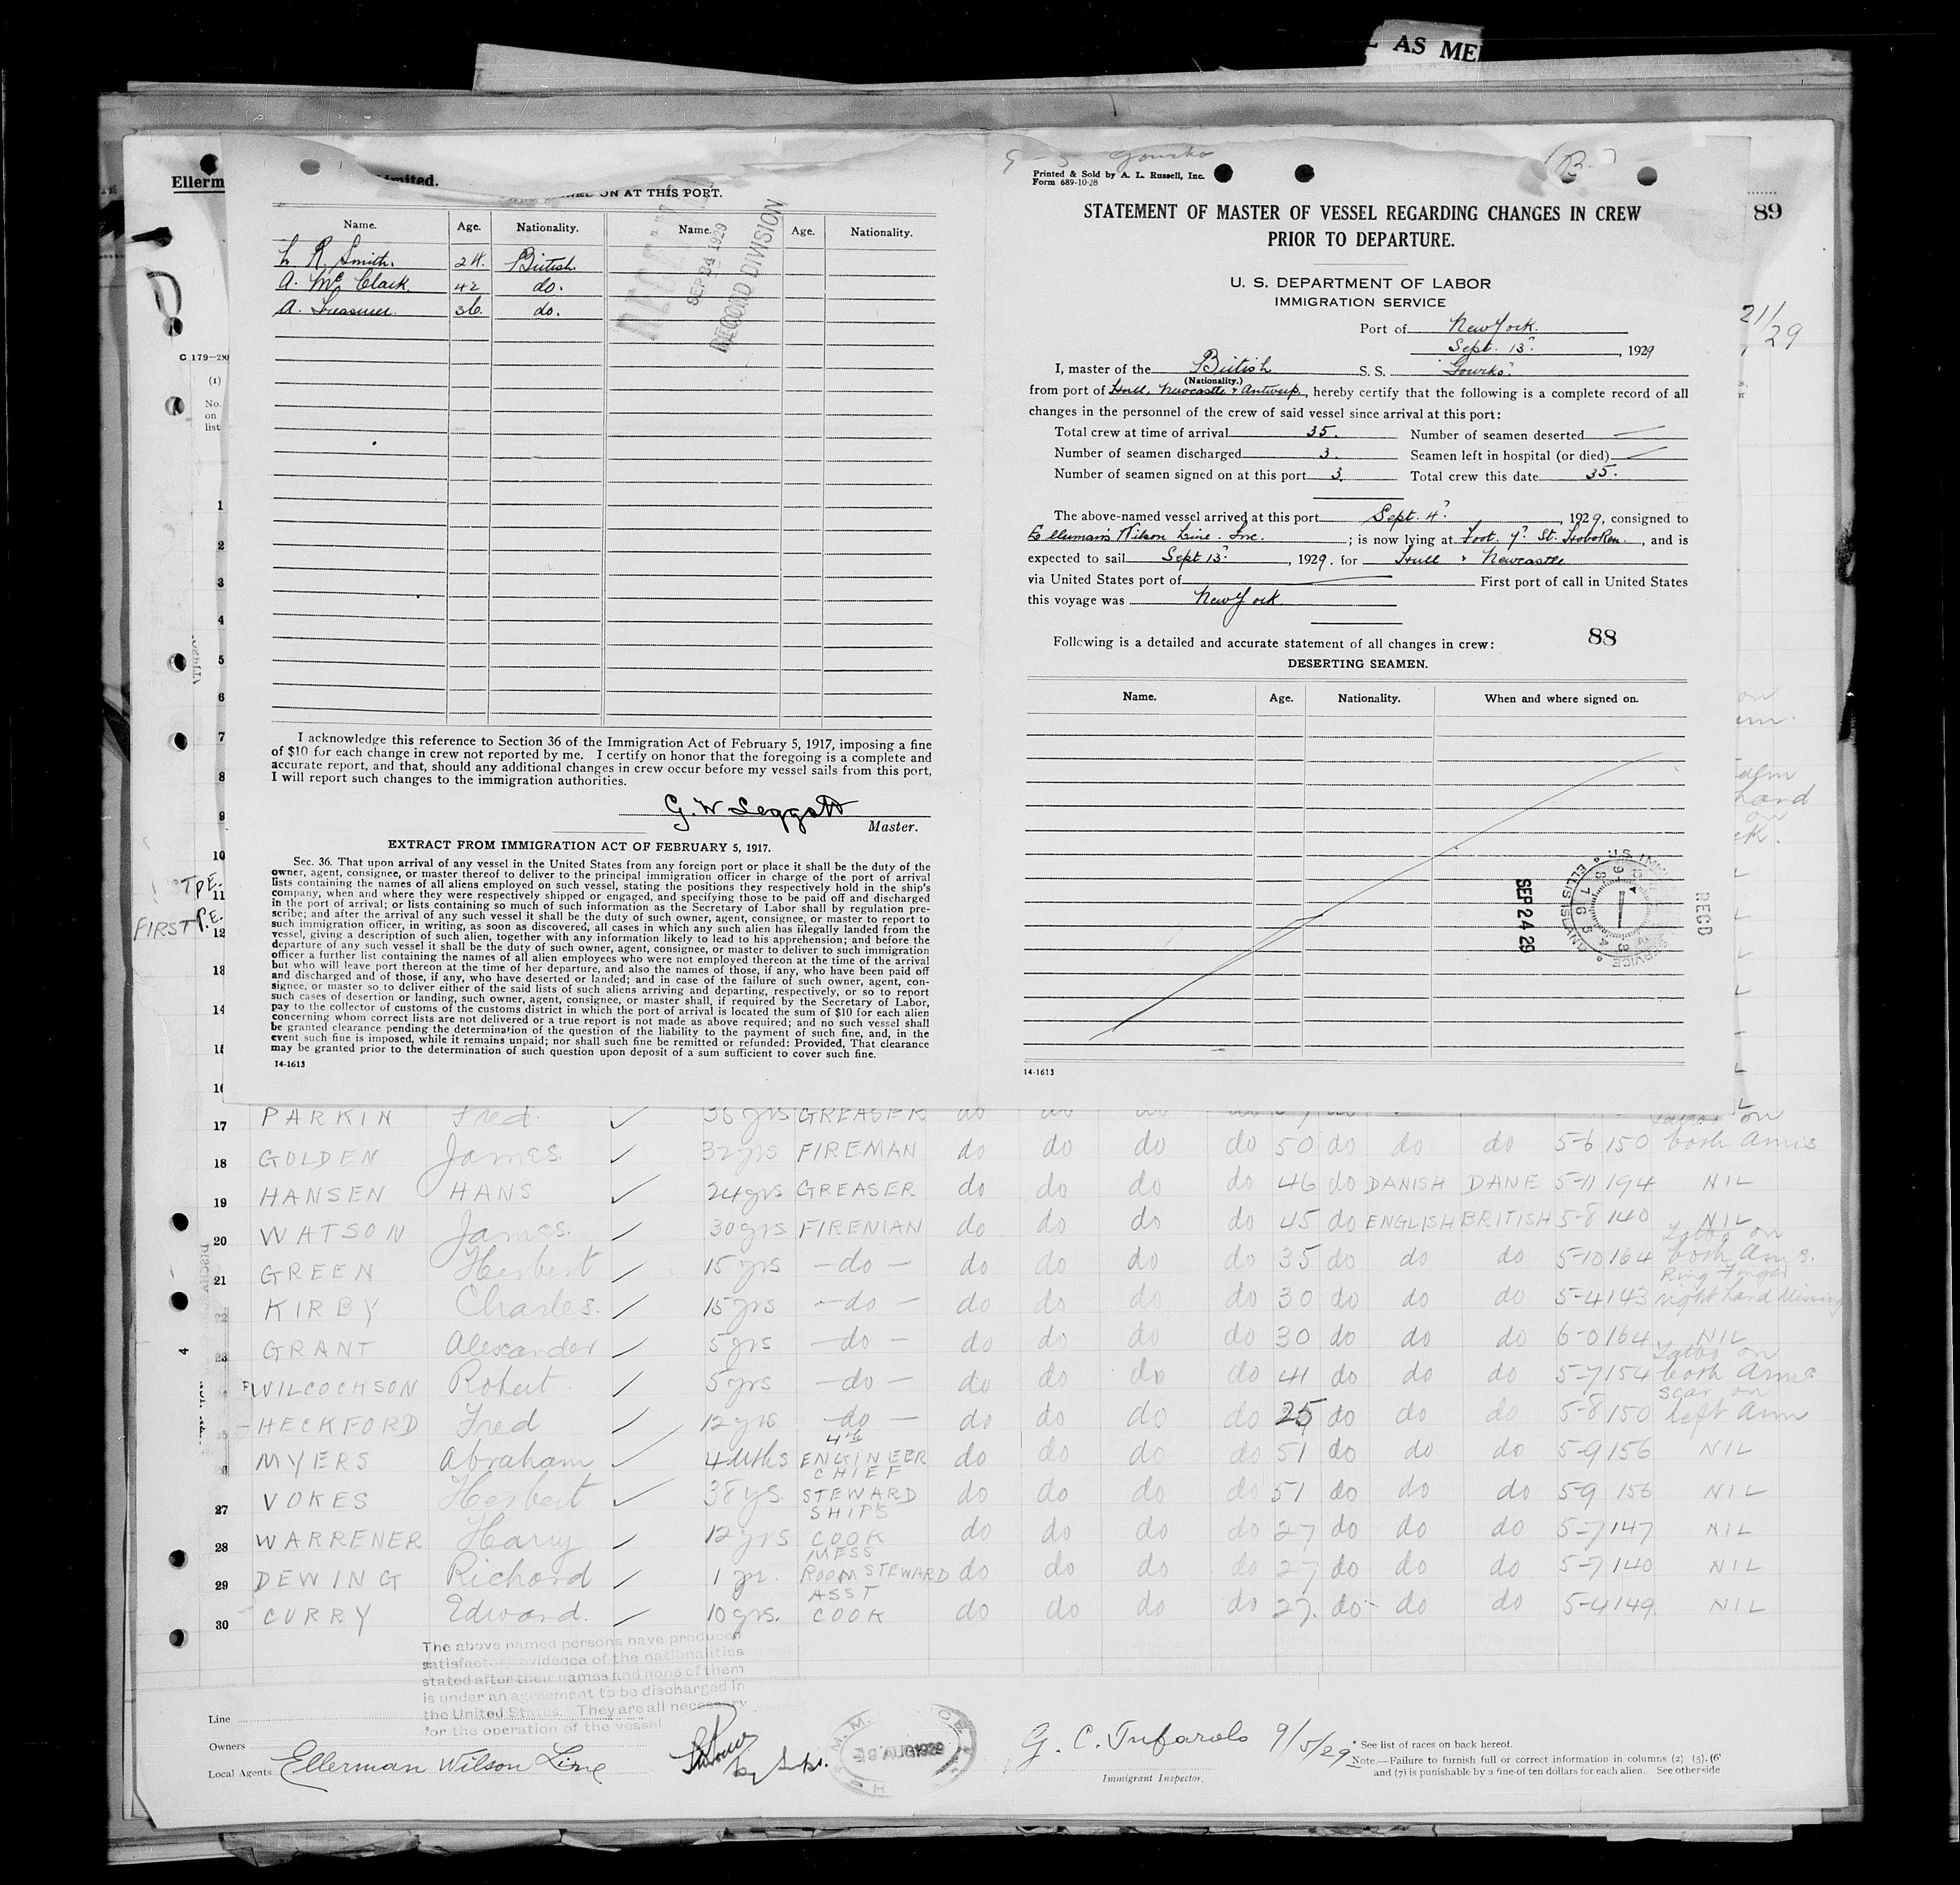 L AS ME
Ellerm
imited.
ON AT THIS PORT.
Name. Age. Nationality. Name. Age. Nationality.
L R Smith. 24. British.
A. McClack. 42 do.
A. 36. do.
RECEIVED
SEP 24 1929
RECORD DIVISION
I acknowledge this reference to Section 36 of the Immigration Act of February 5, 1917, imposing a fine
of $10 for each change in crew not reported by me. I certify on honor that the foregoing is a complete and
accurate report, and that, should any additional changes in crew occur before my vessel sails from this port,
I will report such changes to the immigration authorities.
G. W Leggott
Master.
EXTRACT FROM IMMIGRATION ACT OF FEBRUARY 5, 1917.
Sec. 36. That upon arrival of any vessel in the United States from any foreign port or place it shall be the duty of the
owner, agent, consignee, or master thereof to deliver to the principal immigration officer in charge of the port of arrival
lists containing the names of all aliens employed on such vessel, stating the positions they respectively hold in the ship's
company, when and where they were respectively shipped or engaged, and specifying those to be paid off and discharged
in the port of arrival; or lists containing so much of such information as the Secretary of Labor shall by regulation pre-
scribe; and after the arrival of any such vessel it shall be the duty of such owner, agent, consignee, or master to report to
such immigration officer, in writing, as soon as discovered, all cases in which any such alien has illegally landed from the
vessel, giving a description of such alien, together with any information likely to lead to his apprehension; and before the
departure of any such vessel it shall be the duty of such owner, agent, consignee, or master to deliver to such immigration
officer a further list containing the names of all alien employees who were not employed thereon at the time of the arrival
but who will leave port thereon at the time of her departure, and also the names of those, if any, who have been paid off
and discharged and of those, if any, who have deserted or landed; and in case of the failure of such owner, agent, con-
signee, or master so to deliver either of the said lists of such aliens arriving and departing, respectively, or so to report
such cases of desertion or landing, such owner, agent, consignee, or master shall, if required by the Secretary of Labor,
pay to the collector of customs of the customs district in which the port of arrival is located the sum of $10 for each alien
concerning whom correct lists are not delivered or a true report is not made as above required; and no such vessel shall
be granted clearance pending the determination of the question of the liability to the payment of such fine, and, in the
event such fine is imposed, while it remains unpaid; nor shall such fine be remitted or refunded: Provided, That clearance
may be granted prior to the determination of such question upon deposit of a sum sufficient to cover such fine.
14-1613
Printed & Sold by A. L. Russell, Inc.
Form 689-10-28
STATEMENT OF MASTER OF VESSEL REGARDING CHANGES IN CREW
PRIOR TO DEPARTURE.
89
U. S. DEPARTMENT OF LABOR
IMMIGRATION SERVICE
21/29
Port of New York.
Sept. 13th, 1929
I, master of the British S. S. "Gourko"
(Nationality.)
from port of Hull, Newcastle & Antwerp, hereby certify that the following is a complete record of all
changes in the personnel of the crew of said vessel since arrival at this port:
Total crew at time of arrival 35. Number of seamen deserted
Number of seamen discharged 3. Seamen left in hospital (or died)
Number of seamen signed on at this port 3. Total crew this date 35.
The above-named vessel arrived at this port Sept. 4th, 1929, consigned to
Ellerman's Wilson Line. Inc.; is now lying at Foot. 7th St. Hoboken., and is
expected to sail Sept 13th, 1929. for Hull & Newcastle
via United States port of First port of call in United States
this voyage was New York
Following is a detailed and accurate statement of all changes in crew: 88
DESERTING SEAMEN.
Name. Age. Nationality. When and where signed on.
SEP 24 29
RECD
14-1613
C 179
(1)
No.
on
list
1
2
3
4
5
6
7
8
9
10
11
FIRST P.E. 12
13
14
17 PARKIN Fred. 35 yrs GREASER do
18 GOLDEN James. 32yrs FIREMAN do do do do 50 do do do 5-6 150 both Arms
19 HANSEN HANS 24yrs GREASER do do do do 46 do DANISH DANE 5-11 194 NIL
20 WATSON James. 30yrs FIREMAN do do do do 45 do ENGLISH BRITISH 5-8 140 NIL
21 GREEN Herbert 15 yrs -do- do do do do 35 do do do 5-10 164 Tattoo on both Arms.
22 KIRBY Charles. 15yrs -do- do do do do 30 do do do 5-4 143 Ring Finger right hand Missing
23 GRANT Alexander 5yrs -do- do do do do 30 do do do 6-0 164 NIL
WILCOCKSON Robert. 5yrs -do- do do do do 41 do do do 5-7 154 Tattoo on both Arms
HECKFORD Fred 12yrs -do- do do do do 25 do do do 5-8 150 Scar on left Arm
MYERS Abraham 4 Mths 4th ENGINEER do do do do 51 do do do 5-9 156 NIL
27 VOKES Herbert 38 ys. CHIEF STEWARD do do do do 51 do do do 5-9 156 NIL
28 WARRENER Harry 12yrs SHIPS COOK do do do do 27 do do do 5-7 147 NIL
29 DEWING Richard 1 yr. MESS ROOM STEWARD do do do do 27 do do do 5-7 140 NIL
30 CURRY Edward. 10yrs. ASST COOK do do do do 27. do do do 5-4 149 NIL
The above named persons have produced
satisfactory evidence of the nationalities
stated after their names and none of them
is under an agreement to be discharged in
the United States. They are all necessary
for the operation of the vessel
Line
Owners
Local Agents Ellerman Wilson Line
G. C. Tufarolo 9/5/29
Immigrant Inspector.
* See list of races on back hereof.
Note.—Failure to furnish full or correct information in columns (2) (5), (6)
and (7) is punishable by a fine of ten dollars for each alien. See other side